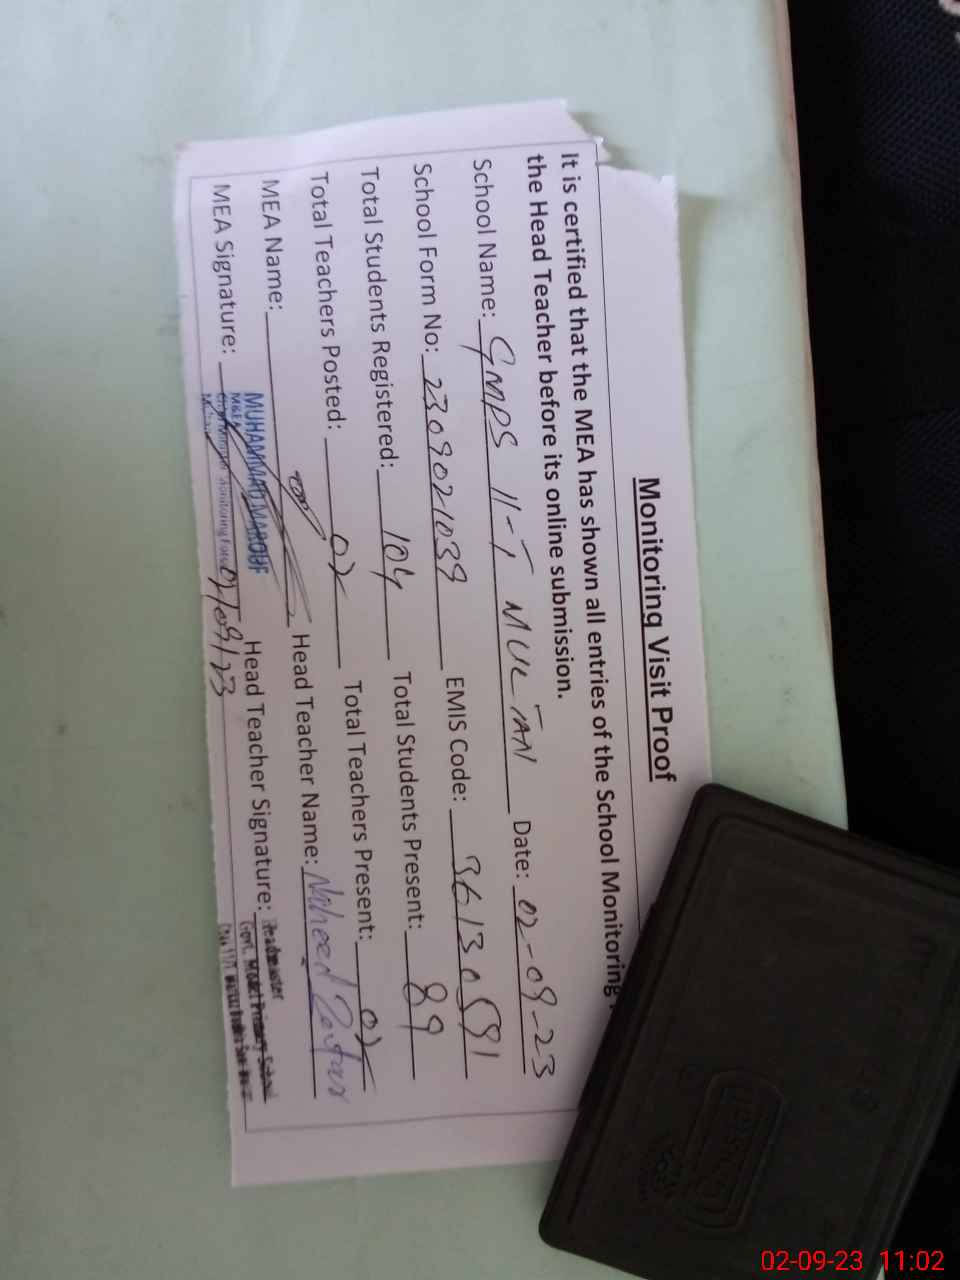 Monitoring Visit Proof
It is certified that the MEA has shown all entries of the School Monitoring
the Head Teacher before its online submission.
School Name: GMPS 11-T MULTAN Date: 02-09-23
School Form No: 2309021039 EMIS Code: 36130591
Total Students Registered: 104 Total Students Present: 89
Total Teachers Posted: 02 Total Teachers Present: 02
MEA Name: MUHAMMAD MAROUF Head Teacher Name: Naheed
MEA Signature: Monitoring Force 02/09/23 Head Teacher Signature: Headmaster
Govt. Model Primary School
02-09-23 11:02